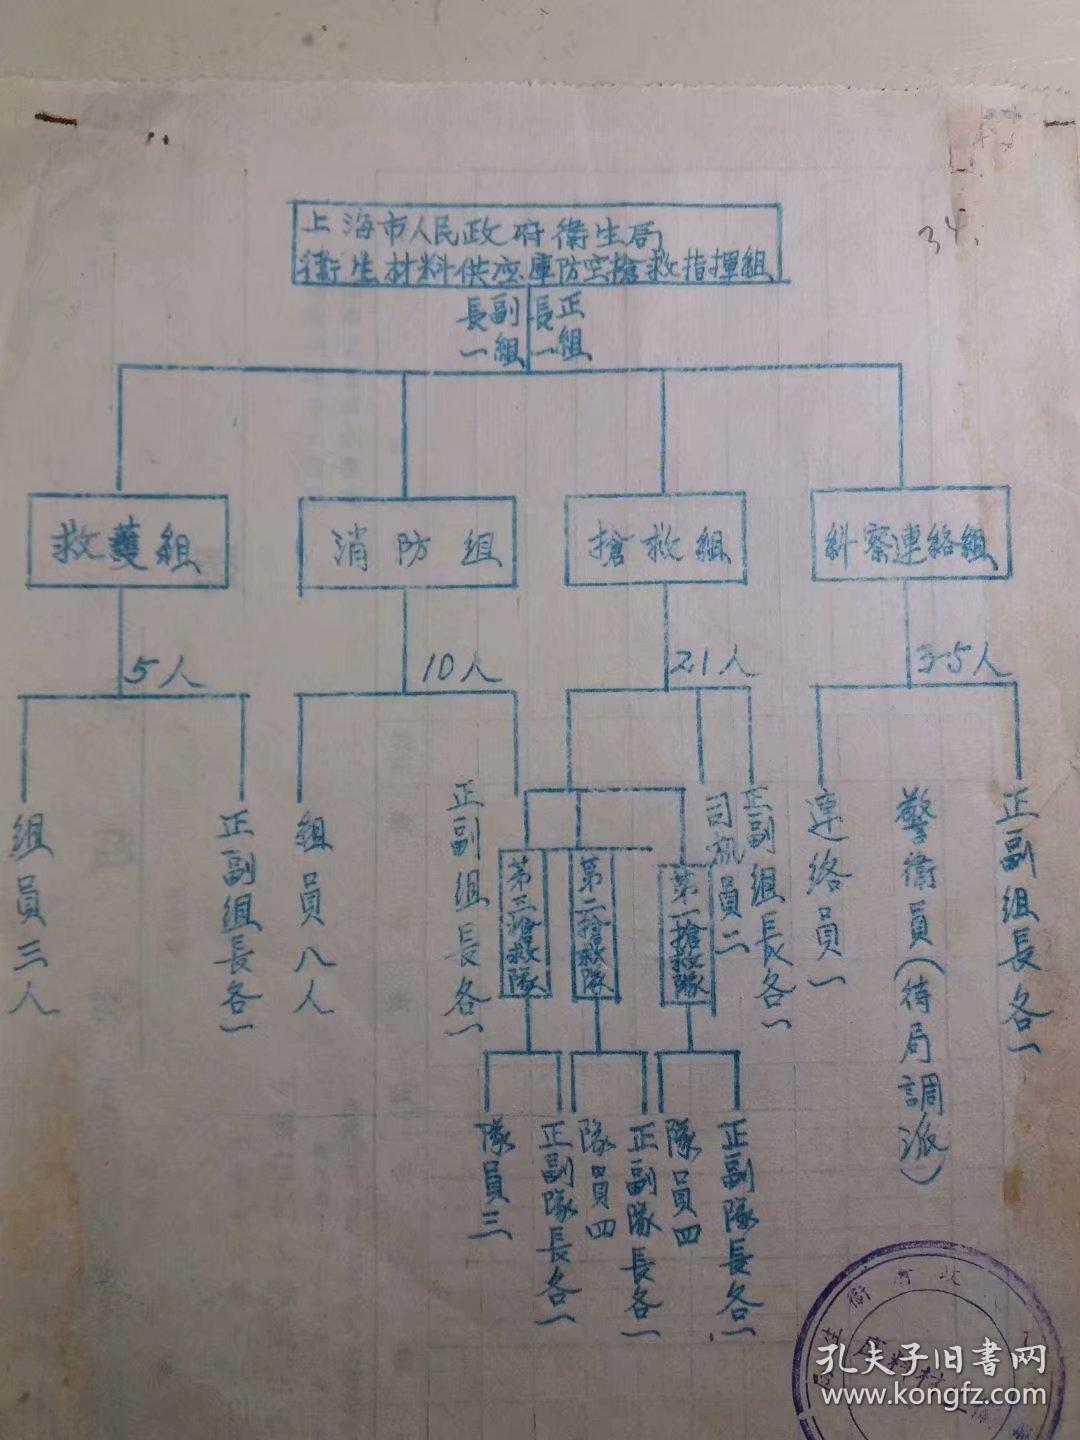 34.
上海市人民政府衛生局
衛生材料供应庫防空搶救指揮組
正組長一
副組長一
救護組
消防組
搶救組
糾察連絡組
5人
10人
21人
3-5人
組員三人
正副組長各一
組員八人
正副組長各一
司机員二
正副組長各一
連络員一
警衛員(待局調派)
正副組長各一
第三搶救隊
第二搶救隊
第一搶救隊
隊員三
正副隊長各一
隊員四
正副隊長各一
隊員四
正副隊長各一
孔夫子旧书网
www.kongfz.com